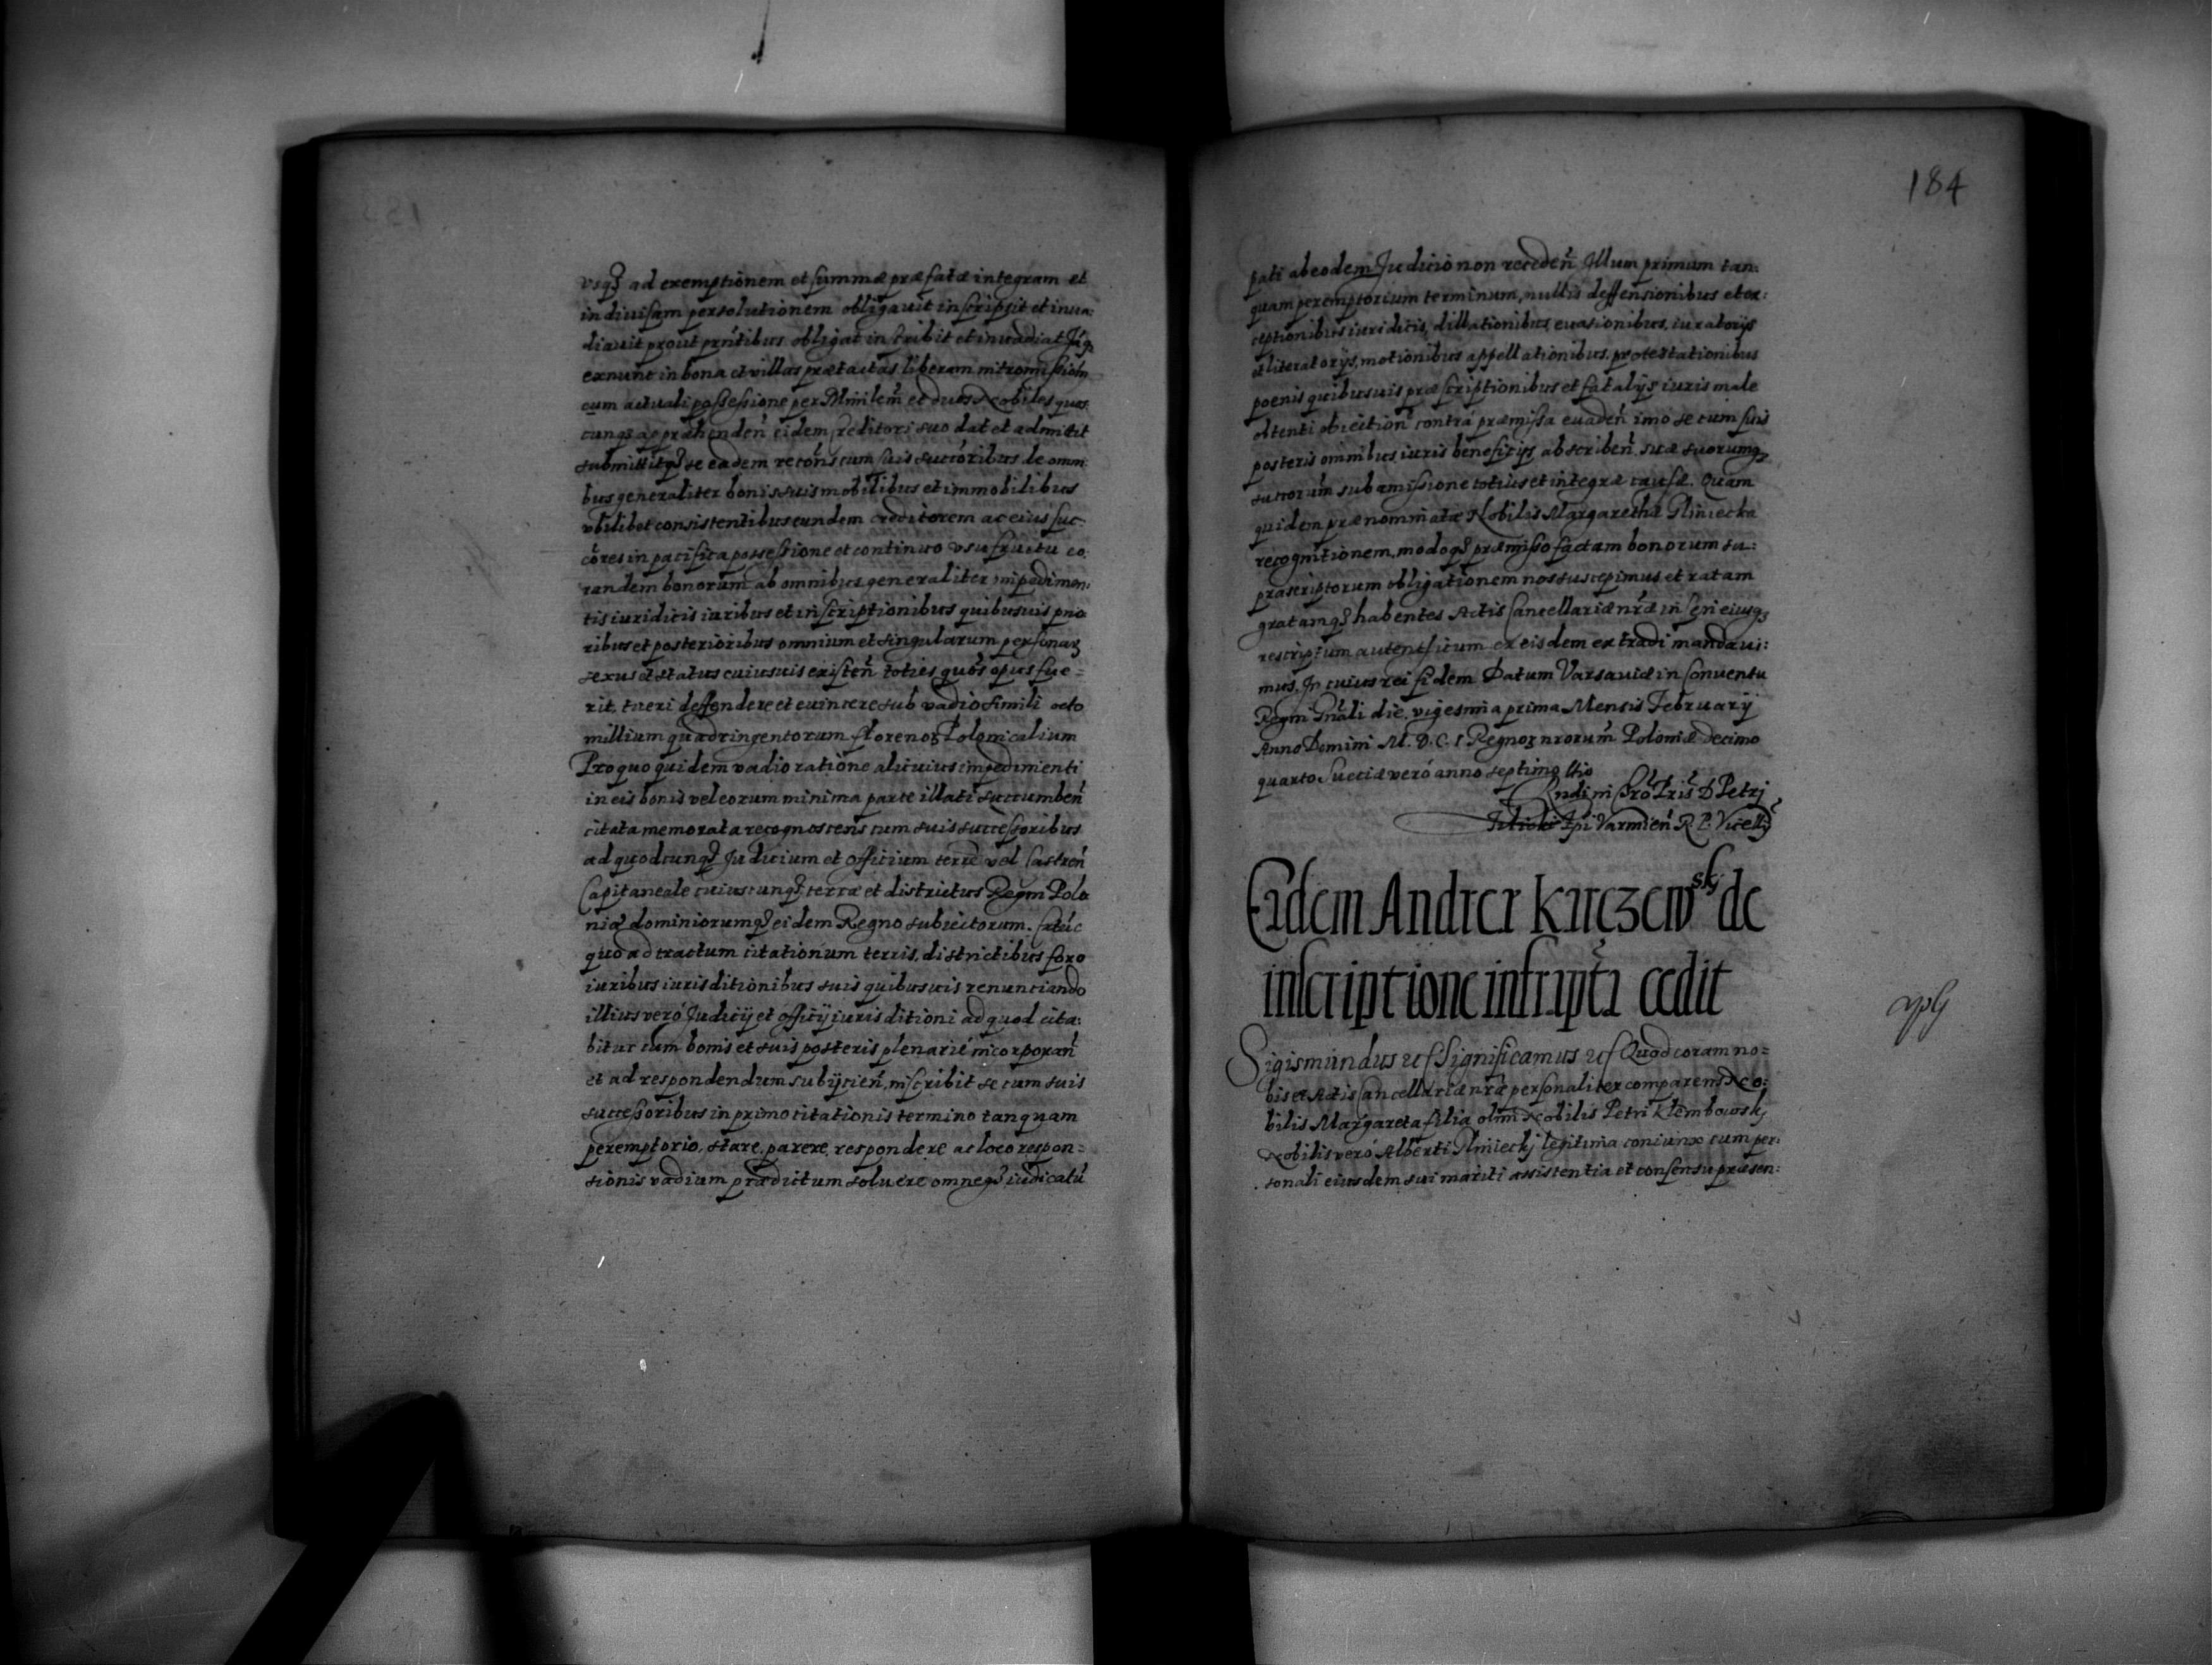 vsq₃ ad exemptionem et summæ præfatæ integram et
indiuisam persolutionem obligauit inscripsit et inua:
diauit prout prńtibus obligat inscribit et inuadiat Iáq₃
exnunc in bona et villas prætactas liberam intromissiom
cum actuali possessione per Mińilem et duos Nobiles quos
cunq₃ appræhendeń eidem creditori suo dat et admittit
submittitq₃ se eadem recońs cum suis succoribus de omni
bus generaliter bonis suis mobilibus et immobilibus
vbilibet consistentibus eundem creditorem ac eius suc:
cores in pacifica possessione et continuo vsufruitu eo:
randem bonorum ab omnibus generaliter impedimen:
tis iuridicis iuribus et inscriptionibus quibusuis prio
ribus et posterioribus omnium et singularum personaꝝ
sexus et status cuiusuis existeń toties quós opus fue=
rit, tueri deffendere et euincere sub vadio simili octo
millium quadringentorum florenoꝝ Polonicalium
Pro quo quidem vadio ratione alicuius impedimenti
in eis bonis vel eorum minima parte illati succumbeń
citata memorata recognoscens cum suis successoribus
ad quodcunq₃ Judicium et officium terre vel Castreń
Capitaneale cuiuscunq₃ terræ et districtus Regni Polo
niæ dominiorumq₃ eidem Regno subiectorum.
quoad tractum citationum terris, districtibus foro
iuribus iurisditionibus suis quibusuis renunciando
illius veró Judicij et officij iurisditioni ad quod cita:
bitur cum bonis et suis posteris plenarié incorporań
et ad respondendum subijcień, inscribit se cum suis
successoribus in primo citationis termino tanquam
peremptorio, stare, parere, respondere ac loco respon=
sionis vadium prædictum soluere omneq₃ iudicatú
184
pati ab eodem Judicio non recedeń Illum primum tan:
quam peremptorium terminum, nullis deffensionibus et ex:
ceptionibus iuridicis, dillationibus, euasionibus, iuratorijs
et literatorijs, motionibus appellationibus, protestationibus
poenis quibusuis præscriptionibus et fatalijs iuris male
obtenti obiectioń contrá præmissa euadeń imó se cum suis
posteris omnibus iuris beneficijs abscribeń, suæ suorumq₃
succorúm sub amissione totius et integræ causæ. Quam
quidem prænominatæ Nobilis Margarethæ Gliniecka
recognitionem, modoq₃ præmisso factam bonorum su:
prascriptorum obligationem nos suscepimus, et ratam
gratamq₃ habentes Actis Cancellariæ nŕæ inseri eiusq₃
rescriptum autenticum ex eisdem extradi mandaui:
mus. In cuius rei fidem Datum Varsauiæ in Conuentu
Regni Gńali die, vigesima prima Mensis February
Anno Domini M. D. C. I Regnoꝝ nrorum Poloniæ decimo
quarto Sueciæ veró anno septimo
Petrj
Tilicki Epi Varmień R. P. Vicecllŷ
Eidem Andreæ Kirczewskj de
inscriptione infriptı cedit
Sigismundus ect Significamus ect Quod coram no=
bis et Actis Cancellariæ nŕæ personaliter comparens No:
bilis Margareta filia olim Nobilis Petri Klembowskj
Nobilis veró Alberti Glinieckj legitima coniunx cum per:
sonali eiusdem sui mariti assistentia et consensu præsen: